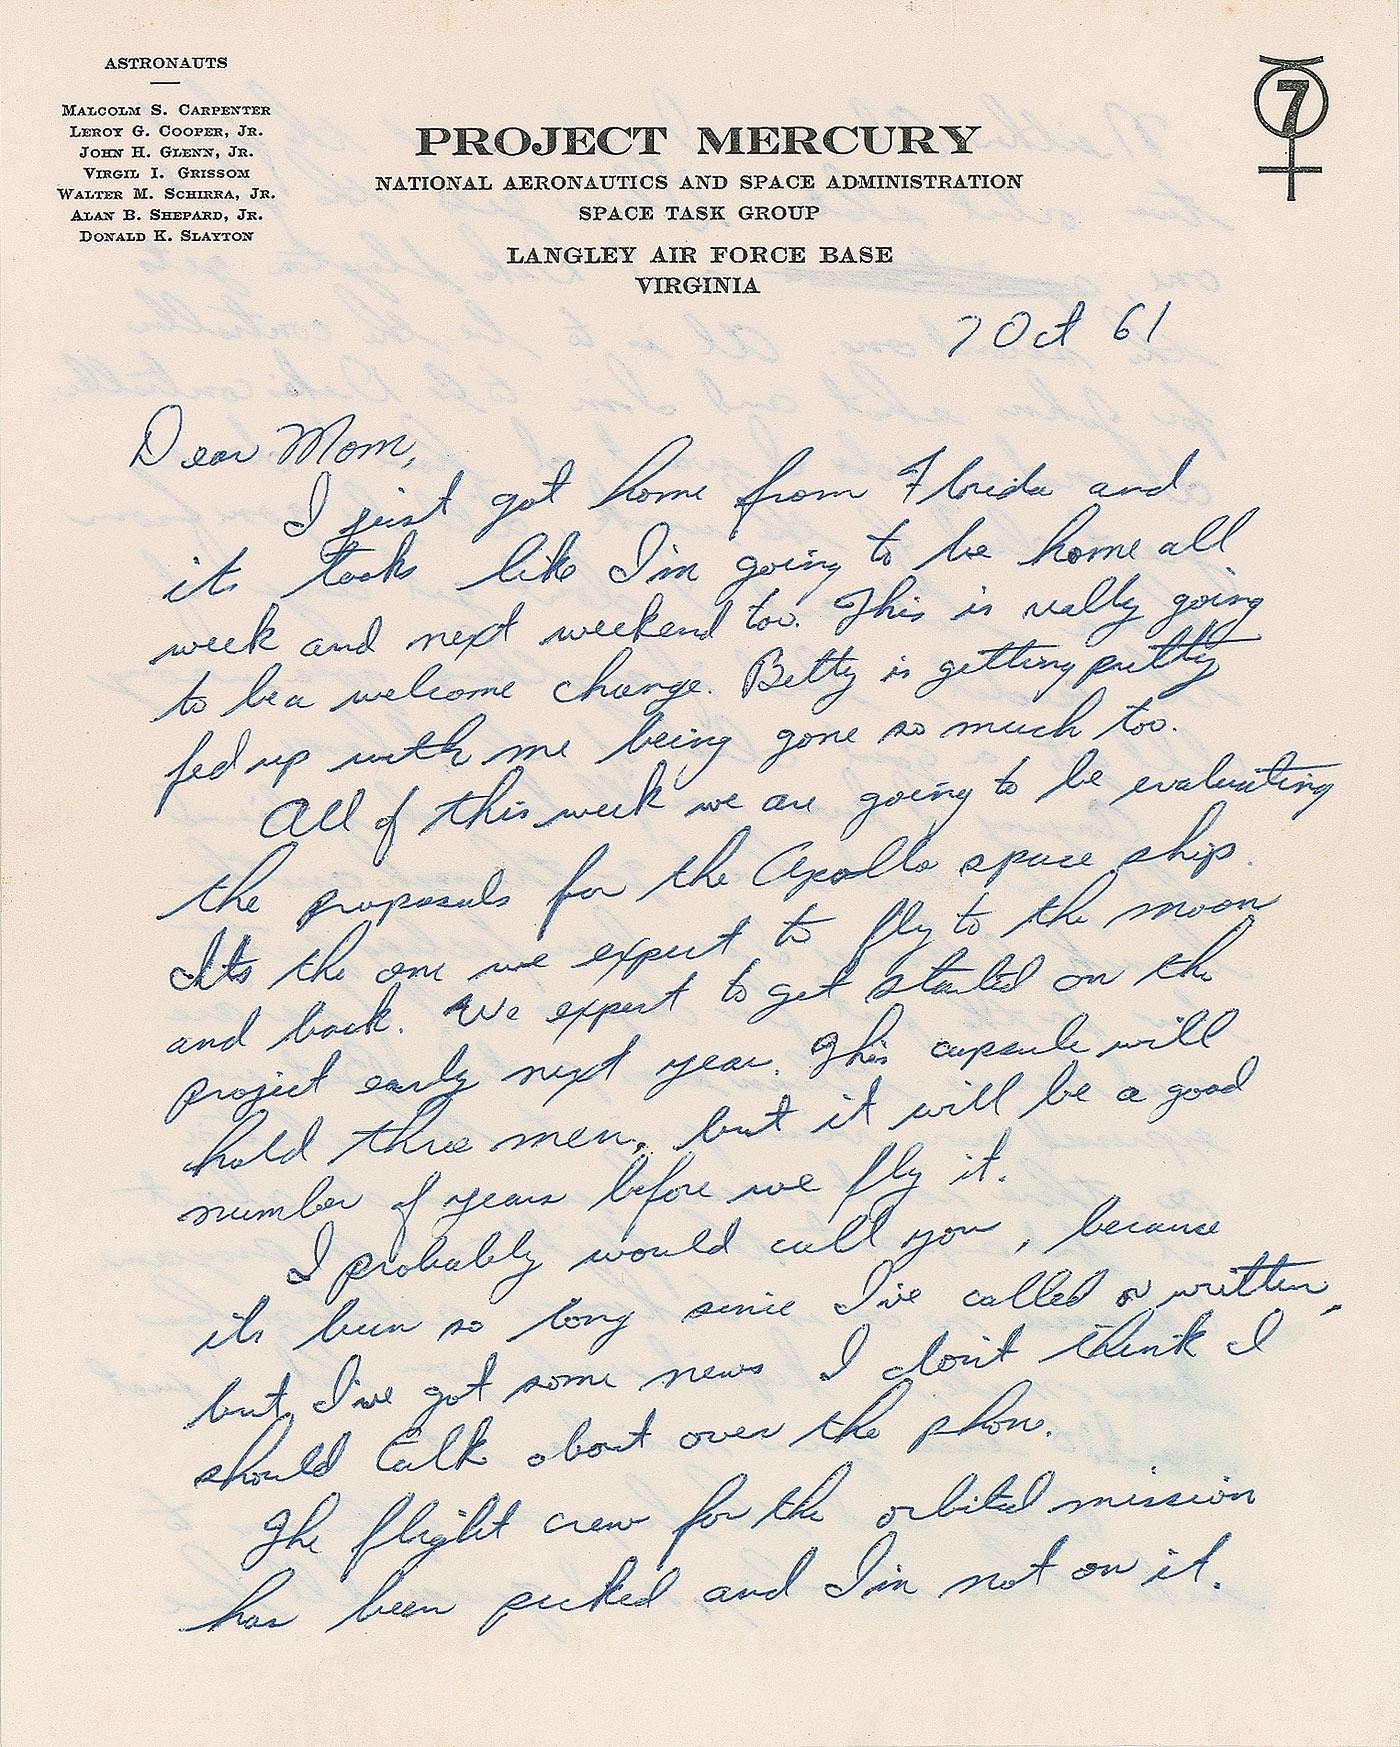 ASTRONAUTS
MALCOLM S. CARPENTER
LEROY G. COOPER, JR.
JOHN H. GLENN, JR.
VIRGIL I. GRISSOM
WALTER M. SCHIRRA, JR.
ALAN B. SHEPARD, JR.
DONALD K. SLAYTON
7
PROJECT MERCURY
NATIONAL AERONAUTICS AND SPACE ADMINISTRATION
SPACE TASK GROUP
LANGLEY AIR FORCE BASE
VIRGINIA
7 Oct 61
Dear Mom,
I just got home from Florida and
its looks like I'm going to be home all
week and next weekend too. This is really going
to be a welcome change. Betty is getting pretty
fed up with me being gone so much too.
All of this week we are going to be evaluating
the proposals for the Apollo space ship.
Its the one we expect to fly to the moon
and back. We expect to get started on the
project early next year. This capsule will
hold three men, but it will be a good
number of years before we fly it.
I probably would call you, because
its been so long since I've called or written,
but I've got some news I don't think I
should talk about over the phon.
The flight crew for the orbital mission
has been picked and I'm not on it.